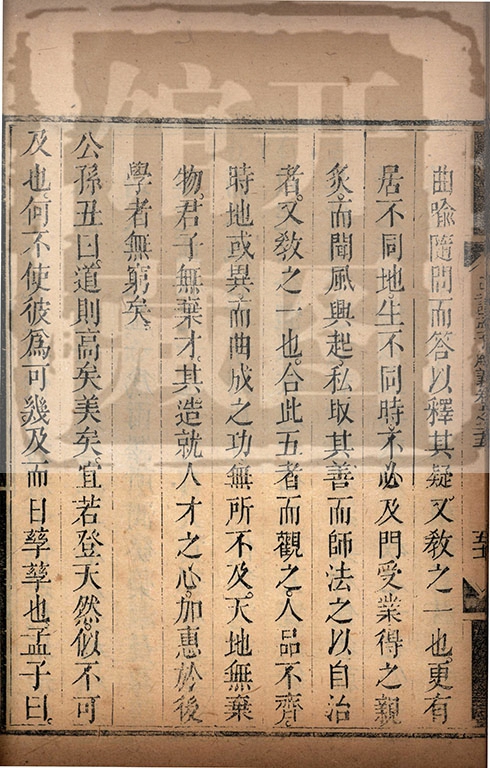 曲喩隨問而答以釋其疑。又敎之一也。更有
居不同地。生不同時。不必及門受業得之親
炙。而聞風興起。私取其善而師法之以自治
者。又敎之一也。合此五者而觀之。人品不齊。
時地或異。而曲成之功無所不及。天地無棄
物。君子無棄才。其造就人才之心。加惠於後
學者無窮矣。
公孫丑曰。道則高矣美矣。宜若登天然。似不可
及也。何不使彼爲可幾及而日孳孳也。孟子曰。